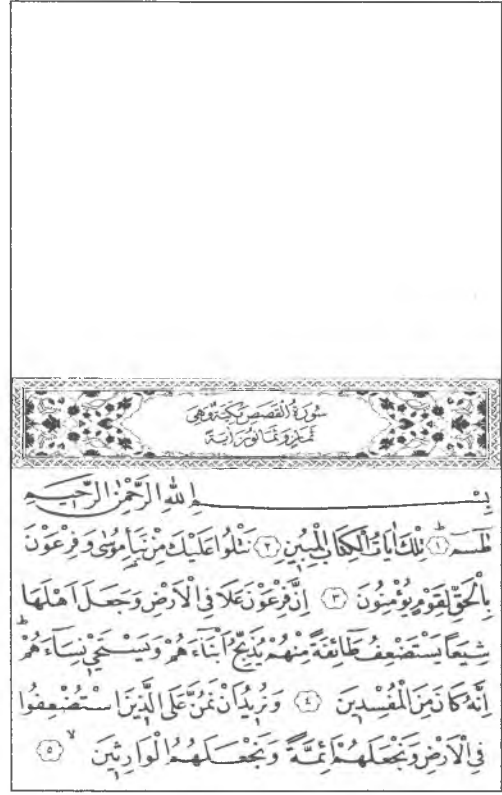 سُورَةُ الْقَصَصِ مَكِّيَّةٌ وَهِىَ
ثَمَانٍ وَثَمَانُونَ اٰيَةً
بِسْمِ اللّٰهِ الرَّحْمٰنِ الرَّحٖيمِ
طٰسٓمٓ ﴿١﴾ تِلْكَ اٰيَاتُ الْكِتَابِ الْمُبٖينِ ﴿٢﴾ نَتْلُوا عَلَيْكَ مِنْ نَبَأِ مُوسٰى وَفِرْعَوْنَ
بِالْحَقِّ لِقَوْمٍ يُؤْمِنُونَ ﴿٣﴾ اِنَّ فِرْعَوْنَ عَلَا فِى الْاَرْضِ وَجَعَلَ اَهْلَهَا
شِيَعًا يَسْتَضْعِفُ طَٓائِفَةً مِنْهُمْ يُذَبِّحُ اَبْنَٓاءَهُمْ وَيَسْتَحْيٖ نِسَٓاءَهُمْ ط
اِنَّهُ كَانَ مِنَ الْمُفْسِدٖينَ ﴿٤﴾ وَنُرٖيدُ اَنْ نَمُنَّ عَلَى الَّذٖينَ اسْتُضْعِفُوا
فِى الْاَرْضِ وَنَجْعَلَهُمْ اَئِمَّةً وَنَجْعَلَهُمُ الْوَارِثٖينَ لا ﴿٥﴾